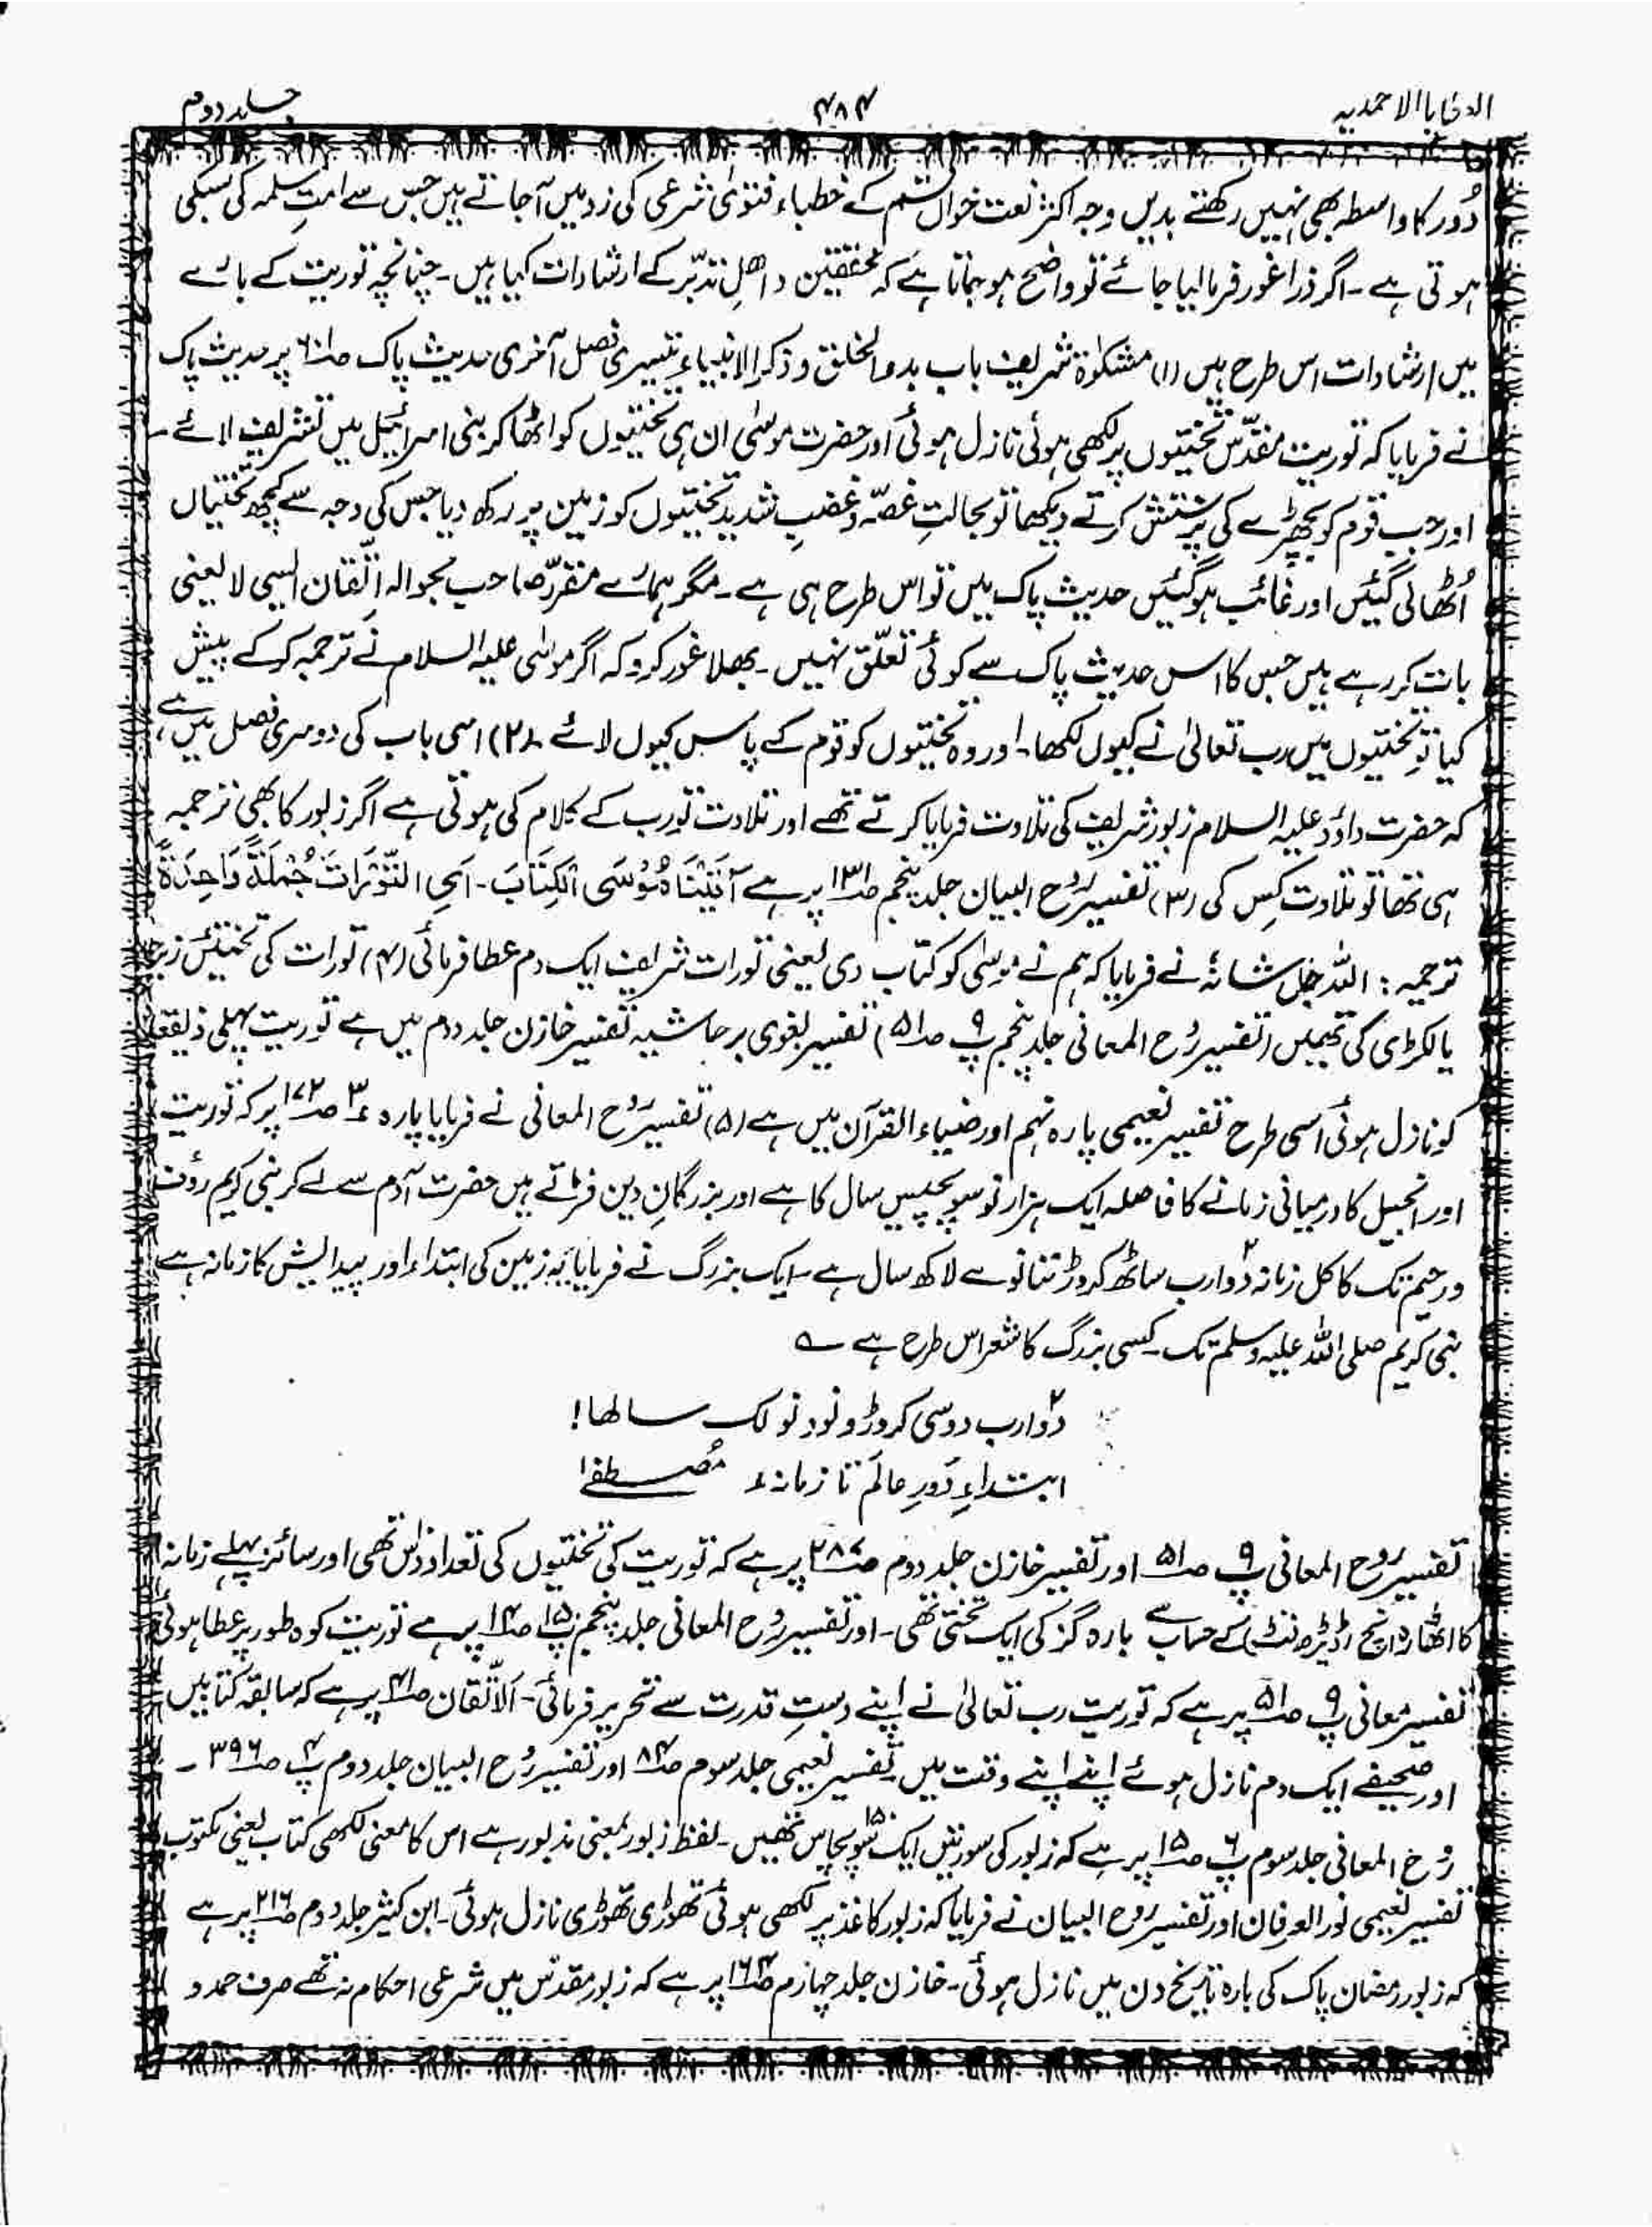 العطایا الاحمدیہ ۴۸۴ جلد دوم
دُور کا واسطہ بھی نہیں رکھتے بدیں وجہ اکثر نعت خواں قسم کے خطباء فتویٰ شرعی کی زد میں آ جاتے ہیں جس سے امتِ مسلمہ کی سبکی
ہوتی ہے ۔ اگر ذرا غور فرما لیا جائے تو واضح ہو جاتا ہے کہ محققین و اھلِ تدبّر کے ارشادات کیا ہیں ۔ چنانچہ توریت کے بارے
میں ارشادات اس طرح ہیں (۱) مشکوٰۃ شریف باب بدء الخلق و ذکر الانبیاءِ تیسری فصل آخری حدیث پاک صـ پر حدیث پاک
نے فرمایا کہ توریت مقدّس تختیوں پر لکھی ہوئی نازل ہوئی اور حضرت موسٰی ان ہی تختیوں کو اٹھا کر بنی اسرائیل میں تشریف لائے ۔
اور جب قوم کو بچھڑے کی پرستش کرتے دیکھا تو بحالتِ غصّہ و غضبِ شدید تختیوں کو زمین پر رکھ دیا جس کی وجہ سے کچھ تختیاں
اُٹھالی گئیں اور غائب ہو گئیں حدیث پاک میں تو اس طرح ہی ہے ۔ مگر ہمارے مقرّر صاحب بحوالہ اِتّقان ایسی لا یعنی
بات کر رہے ہیں جس کا اس حدیث پاک سے کوئی تعلّق نہیں ۔ بھلا غور کرو کہ اگر موسٰی علیہ السلام نے ترجمہ کر کے پیش
کیا تو تختیوں میں رب تعالیٰ نے کیوں لکھا ۔ اور وہ تختیوں کو قوم کے پاس کیوں لائے ۔ (۲) اسی باب کی دوسری فصل میں ہے،
کہ حضرت داؤد علیہ السلام زبور شریف کی تلاوت فرمایا کرتے تھے اور تلاوت تو رب کے کلام کی ہوتی ہے اگر زبور کا بھی ترجمہ
ہی تھا تو تلاوت کِس کی (۳) تفسیر رُوح البیان جلد پنجم صـ۱۳۱ پر ہے آتَیْنَاہُ مُوْسَی الْکِتَابَ ۔ اَیِ التَّوْرَاتَ جُمْلَۃً وَاحِدَۃً
ترجمہ: اللہ جل شانہٗ نے فرمایا کہ ہم نے موسٰی کو کتاب دی یعنی تورات شریف ایک دم عطا فرمائی (۴) تورات کی تختیئں زبرجد
یا لکڑی کی تھیں (تفسیر رُوح المعانی جلد پنجم پ۹ صـ۵۱) تفسیر بغوی بر حاشیہ تفسیر خازن جلد دوم میں ہے توریت پہلی ذیقعد
کو نازل ہوئی اسی طرح تفسیر نعیمی پارہ نہم اور ضیاء القرآن میں ہے (۵) تفسیر رُوح المعانی نے فرمایا پارہ ۳ صـ۱۷۲ پر کہ توریت
اور انجیل کا درمیانی زمانے کا فاصلہ ایک ہزار نو سو پچیس سال کا ہے اور بزرگانِ دین فرماتے ہیں حضرت آدم سے لے کر نبی کریم رؤف
و رحیم تک کا کل زمانہ دو۲ ارب ساٹھ کروڑ ننانوے لاکھ سال ہے ۔ ایک بزرگ نے فرمایا یہ زمین کی ابتداء اور پیدایش کا زمانہ ہے
نبی کریم صلی اللہ علیہ وسلم تک ۔ کسی بزرگ کا شعر اس طرح ہے ؎
دو۲ ارب دو سی کروڑ و نود نو لک سالھا!
ابتداءِ دَورِ عالَم تا زمانہء مُصطفےٰ
تفسیر روح المعانی پ۹ صـ۵۱ اور تفسیر خازن جلد دوم صـ۲۸۷ پر ہے کہ توریت کی تختیوں کی تعداد دس تھی اور سائز پہلے زمانہ
کا اٹھارہ انچ (ڈیڑھ فٹ) کے حساب سے بارہ گز کی ایک تختی تھی ۔ اور تفسیر رُوح المعانی جلد پنجم پ۱۵ صـ۱۴ پر ہے توریت کوہ طور پر عطا ہوئی
تفسیر معانی پ۹ صـ۵۱ پر ہے کہ توریت رب تعالیٰ نے اپنے دستِ قدرت سے تحریر فرمائی ۔ اَلاتّقان صـ۴۱ پر ہے کہ سابقہ کتابیں
اور صحیفے ایک دم نازل ہوئے اپنے اپنے وقت میں ۔ تفسیر نعیمی جلد سوم صـ۸۴ اور تفسیر رُوح البیان جلد دوم پ۴ صـ۳۹۶ ۔
رُوح المعانی جلد سوم پ۶ صـ۱۵ پر ہے کہ زبور کی سورتیں ایک سو پچاس۱۵۰ تھیں ۔ لفظ زبور بمعنی مذبور ہے اس کا معنی لکھی کتاب یعنی مکتوب
تفسیر نعیمی نور العرفان اور تفسیر روح البیان نے فرمایا کہ زبور کاغذ پر لکھی ہوئی تھوڑی تھوڑی نازل ہوئی ۔ ابن کثیر جلد دوم صـ۲۱۶ پر ہے
کہ زبور رمضان پاک کی بارہ تاریخ دن میں نازل ہوئی ۔ خازن جلد چہارم صـ۱۶۴ پر ہے کہ زبور مقدّس میں شرعی احکام نہ تھے صرف حمد و